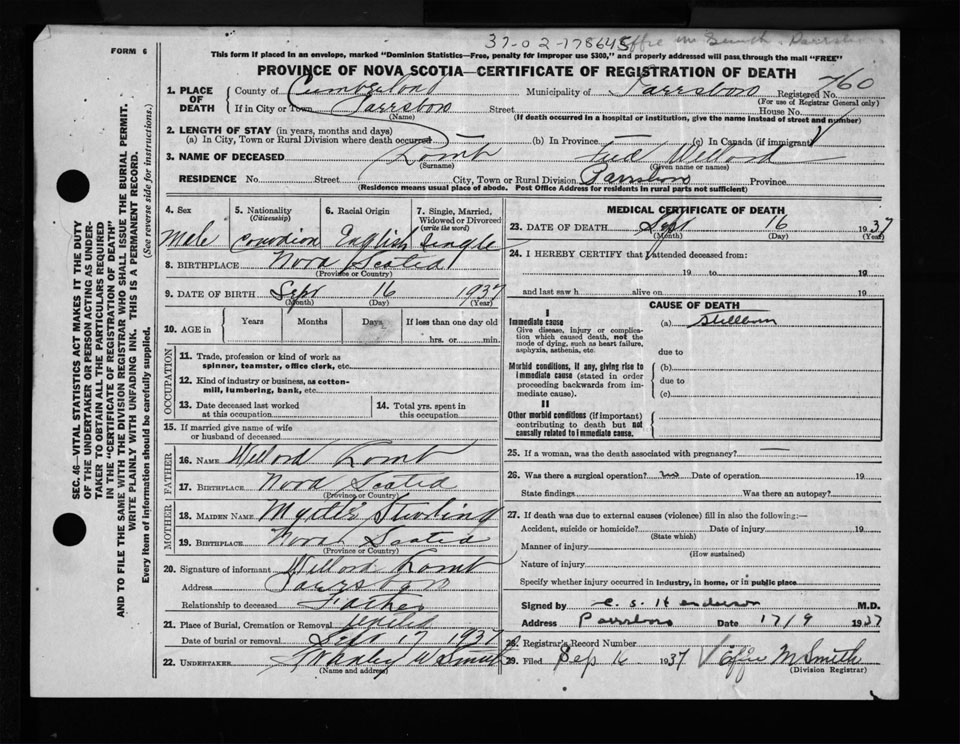 37-02-178645 Effie M Smith Parrsboro
FORM 6
This form if placed in an envelope, marked "Dominion Statistics—Free, penalty for improper use $300," and properly addressed will pass through the mail "FREE"
PROVINCE OF NOVA SCOTIA—CERTIFICATE OF REGISTRATION OF DEATH
1. PLACE OF DEATH { County of Cumberland Municipality of Parrsboro Registered No. 760
(For use of Registrar General only)
If in City or Town Parrsboro Street House No.
(Name) (If death occurred in a hospital or institution, give the name instead of street and number)
2. LENGTH OF STAY (in years, months and days)
(a) In City, Town or Rural Division where death occurred — (b) In Province — (c) In Canada (if immigrant)
3. NAME OF DECEASED Lamb Willard
(Surname) (Given name or names)
RESIDENCE No. Street City, Town or Rural Division Parrsboro Province
(Residence means usual place of abode. Post Office Address for residents in rural parts not sufficient)
4. Sex 5. Nationality (Citizenship) 6. Racial Origin 7. Single, Married, Widowed or Divorced (write the word)
Male Canadian English Single
8. BIRTHPLACE Nova Scotia
(Province or Country)
9. DATE OF BIRTH Sept 16 1937
(Month) (Day) (Year)
10. AGE in Years Months Days If less than one day old
hrs. or min.
OCCUPATION
11. Trade, profession or kind of work as spinner, teamster, office clerk, etc.
12. Kind of industry or business, as cotton-mill, lumbering, bank, etc.
13. Date deceased last worked at this occupation
14. Total yrs. spent in this occupation
15. If married give name of wife or husband of deceased
FATHER
16. NAME Willard Lamb
17. BIRTHPLACE Nova Scotia
(Province or Country)
MOTHER
18. MAIDEN NAME Myrtle
19. BIRTHPLACE Nova Scotia
(Province or Country)
20. Signature of informant Willard Lamb
Address Parrsboro
Relationship to deceased Father
21. Place of Burial, Cremation or Removal
Date of burial or removal Sept 17 1937
22. UNDERTAKER W Smith
(Name and address)
MEDICAL CERTIFICATE OF DEATH
23. DATE OF DEATH Sept 16 1937
(Month) (Day) (Year)
24. I HEREBY CERTIFY that I attended deceased from:
19 to 19
and last saw h alive on 19
CAUSE OF DEATH
I
Immediate cause (a) Stillborn
Give disease, injury or complication which caused death, not the mode of dying, such as heart failure, asphyxia, asthenia, etc.
due to
Morbid conditions, if any, giving rise to immediate cause (stated in order proceeding backwards from immediate cause).
(b)
due to
(c)
II
Other morbid conditions (if important) contributing to death but not causally related to immediate cause.
25. If a woman, was the death associated with pregnancy? —
26. Was there a surgical operation? no Date of operation 19
State findings Was there an autopsy?
27. If death was due to external causes (violence) fill in also the following:—
Accident, suicide or homicide? Date of injury 19
(State which)
Manner of injury
(How sustained)
Nature of injury
Specify whether injury occurred in industry, in home, or in public place
Signed by C. S. Henderson M.D.
Address Parrsboro Date 17/9 1937
28. Registrar's Record Number
29. Filed Sep 16 1937 Effie M Smith
(Division Registrar)
SEC. 46—VITAL STATISTICS ACT MAKES IT THE DUTY
OF THE UNDERTAKER OR PERSON ACTING AS UNDER-
TAKER TO OBTAIN ALL THE PARTICULARS REQUIRED
IN THE "CERTIFICATE OF REGISTRATION OF DEATH"
AND TO FILE THE SAME WITH THE DIVISION REGISTRAR WHO SHALL ISSUE THE BURIAL PERMIT.
WRITE PLAINLY WITH UNFADING INK. THIS IS A PERMANENT RECORD.
Every item of information should be carefully supplied. (See reverse side for instructions.)